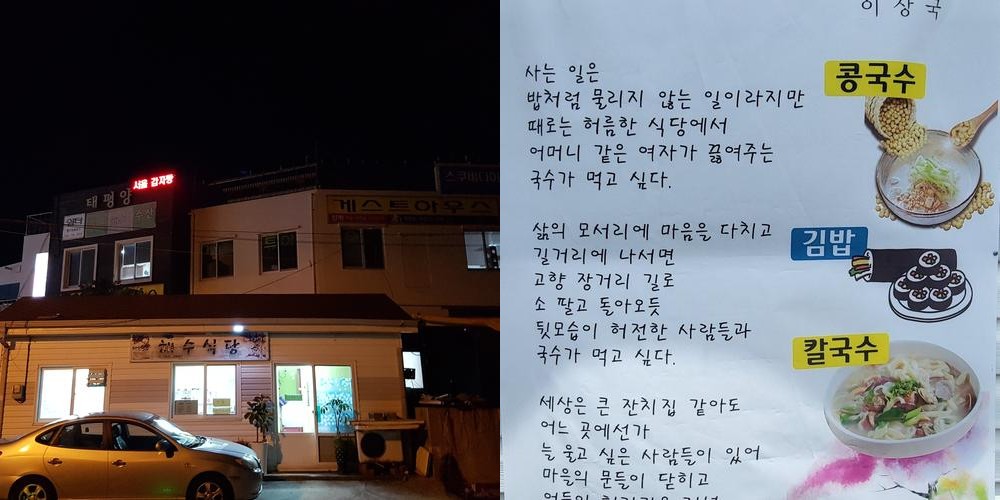 서울 감자탕
태평양
수산
스쿠버다이
게스트하우스
해수식당
이상국
사는 일은
밥처럼 물리지 않는 일이라지만
때로는 허름한 식당에서
어머니 같은 여자가 끓여주는
국수가 먹고 싶다.
삶의 모서리에 마음을 다치고
길거리에 나서면
고향 장거리 길로
소 팔고 돌아오듯
뒷모습이 허전한 사람들과
국수가 먹고 싶다.
세상은 큰 잔치집 같아도
어느 곳에선가
늘 울고 싶은 사람들이 있어
마을의 문들이 닫히고
콩국수
김밥
칼국수